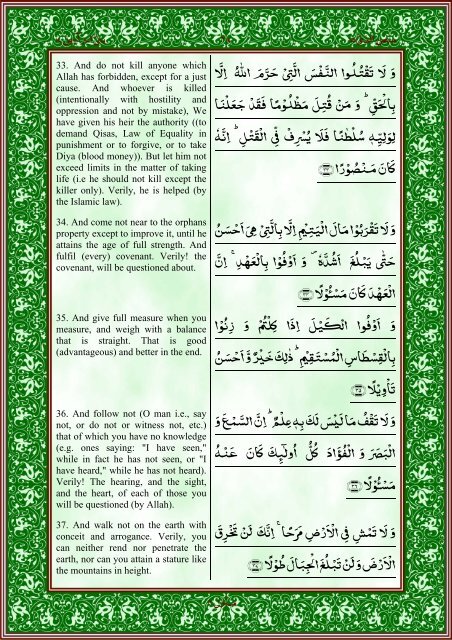 33. And do not kill anyone which
Allah has forbidden, except for a just
cause. And whoever is killed
(intentionally with hostility and
oppression and not by mistake), We
have given his heir the authority ((to
demand Qisas, Law of Equality in
punishment or to forgive, or to take
Diya (blood money)). But let him not
exceed limits in the matter of taking
life (i.e he should not kill except the
killer only). Verily, he is helped (by
the Islamic law).
وَ لَا تَقْتُلُوا النَّفْسَ الَّتِیْ حَرَّمَ اللّٰهُ اِلَّا
بِالْحَقِّ ؕ وَ مَنْ قُتِلَ مَظْلُوْمًا فَقَدْ جَعَلْنَا
لِوَلِیِّهٖ سُلْطٰنًا فَلَا یُسْرِفْ فِّی الْقَتْلِ ؕ اِنَّهٗ
كَانَ مَنْصُوْرًا ﴿۳۳﴾
34. And come not near to the orphans
property except to improve it, until he
attains the age of full strength. And
fulfil (every) covenant. Verily! the
covenant, will be questioned about.
وَ لَا تَقْرَبُوْا مَالَ الْیَتِیْمِ اِلَّا بِالَّتِیْ هِیَ اَحْسَنُ
حَتّٰی یَبْلُغَ اَشُدَّهٗ ۪ وَ اَوْفُوْا بِالْعَهْدِ ۚ اِنَّ
الْعَهْدَ كَانَ مَسْـُٔوْلًا ﴿۳۴﴾
35. And give full measure when you
measure, and weigh with a balance
that is straight. That is good
(advantageous) and better in the end.
وَ اَوْفُوا الْكَیْلَ اِذَا كِلْتُمْ وَ زِنُوْا
بِالْقِسْطَاسِ الْمُسْتَقِیْمِ ؕ ذٰلِكَ خَیْرٌ وَّ اَحْسَنُ
تَاْوِیْلًا ﴿۳۵﴾
36. And follow not (O man i.e., say
not, or do not or witness not, etc.)
that of which you have no knowledge
(e.g. ones saying: "I have seen,"
while in fact he has not seen, or "I
have heard," while he has not heard).
Verily! The hearing, and the sight,
and the heart, of each of those you
will be questioned (by Allah).
وَ لَا تَقْفُ مَا لَیْسَ لَكَ بِهٖ عِلْمٌ ؕ اِنَّ السَّمْعَ وَ
الْبَصَرَ وَ الْفُؤَادَ كُلُّ اُولٰٓئِكَ كَانَ عَنْهُ
مَسْـُٔوْلًا ﴿۳۶﴾
37. And walk not on the earth with
conceit and arrogance. Verily, you
can neither rend nor penetrate the
earth, nor can you attain a stature like
the mountains in height.
وَ لَا تَمْشِ فِی الْاَرْضِ مَرَحًا ۚ اِنَّكَ لَنْ تَخْرِقَ
الْاَرْضَ وَ لَنْ تَبْلُغَ الْجِبَالَ طُوْلًا ﴿۳۷﴾